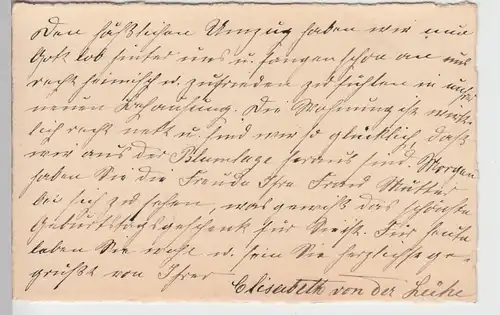 Den häßlichen Umzug haben wir nun
Gott lob hinter uns u. fangen schon an uns
recht heimisch u. zufrieden zu fühlen in unsrer
neuen Behausung. Die Wohnung ist wirk-
lich recht nett u. sind wir so glücklich, daß
wir aus der Blumlage heraus sind. Morgen
haben Sie die Freude Ihre Frau Mutter
bei sich zu sehen, was gewiß das schönste
Geburtstagsgeschenk für Sie ist. Für heute
leben Sie wohl u. sein Sie herzlichst ge-
grüßt von Ihrer
Elisabeth von der Lühe